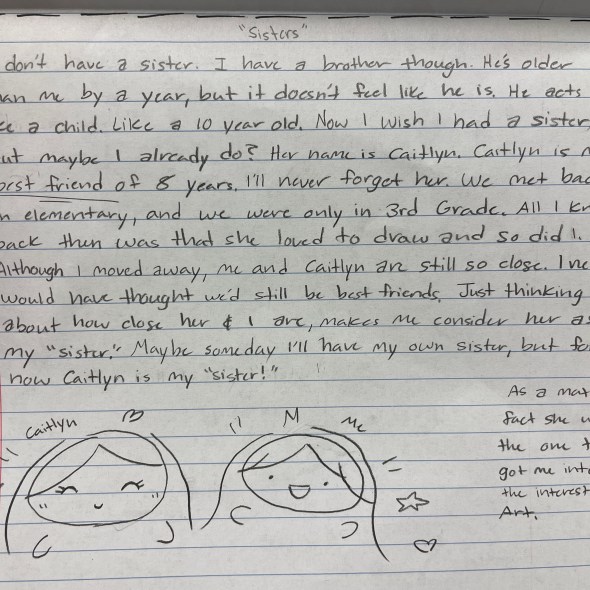 "Sisters"
don't have a sister. I have a brother though. He's older
an me by a year, but it doesn't feel like he is. He acts
ke a child. Like a 10 year old. Now I wish I had a sister,
ut maybe I already do? Her name is Caitlyn. Caitlyn is m
best friend of 8 years. I'll never forget her. We met bac
n elementary, and we were only in 3rd Grade. All I kn
back then was that she loved to draw and so did I.
Although I moved away, me and Caitlyn are still so close. I ne
would have thought we'd still be best friends. Just thinking
about how close her & I are, makes me consider her as
my "sister." Maybe someday I'll have my own sister, but fo
now Caitlyn is my "sister!"
As a mat
fact she w
the one t
got me int
the interest
Art.
Caitlyn
Me